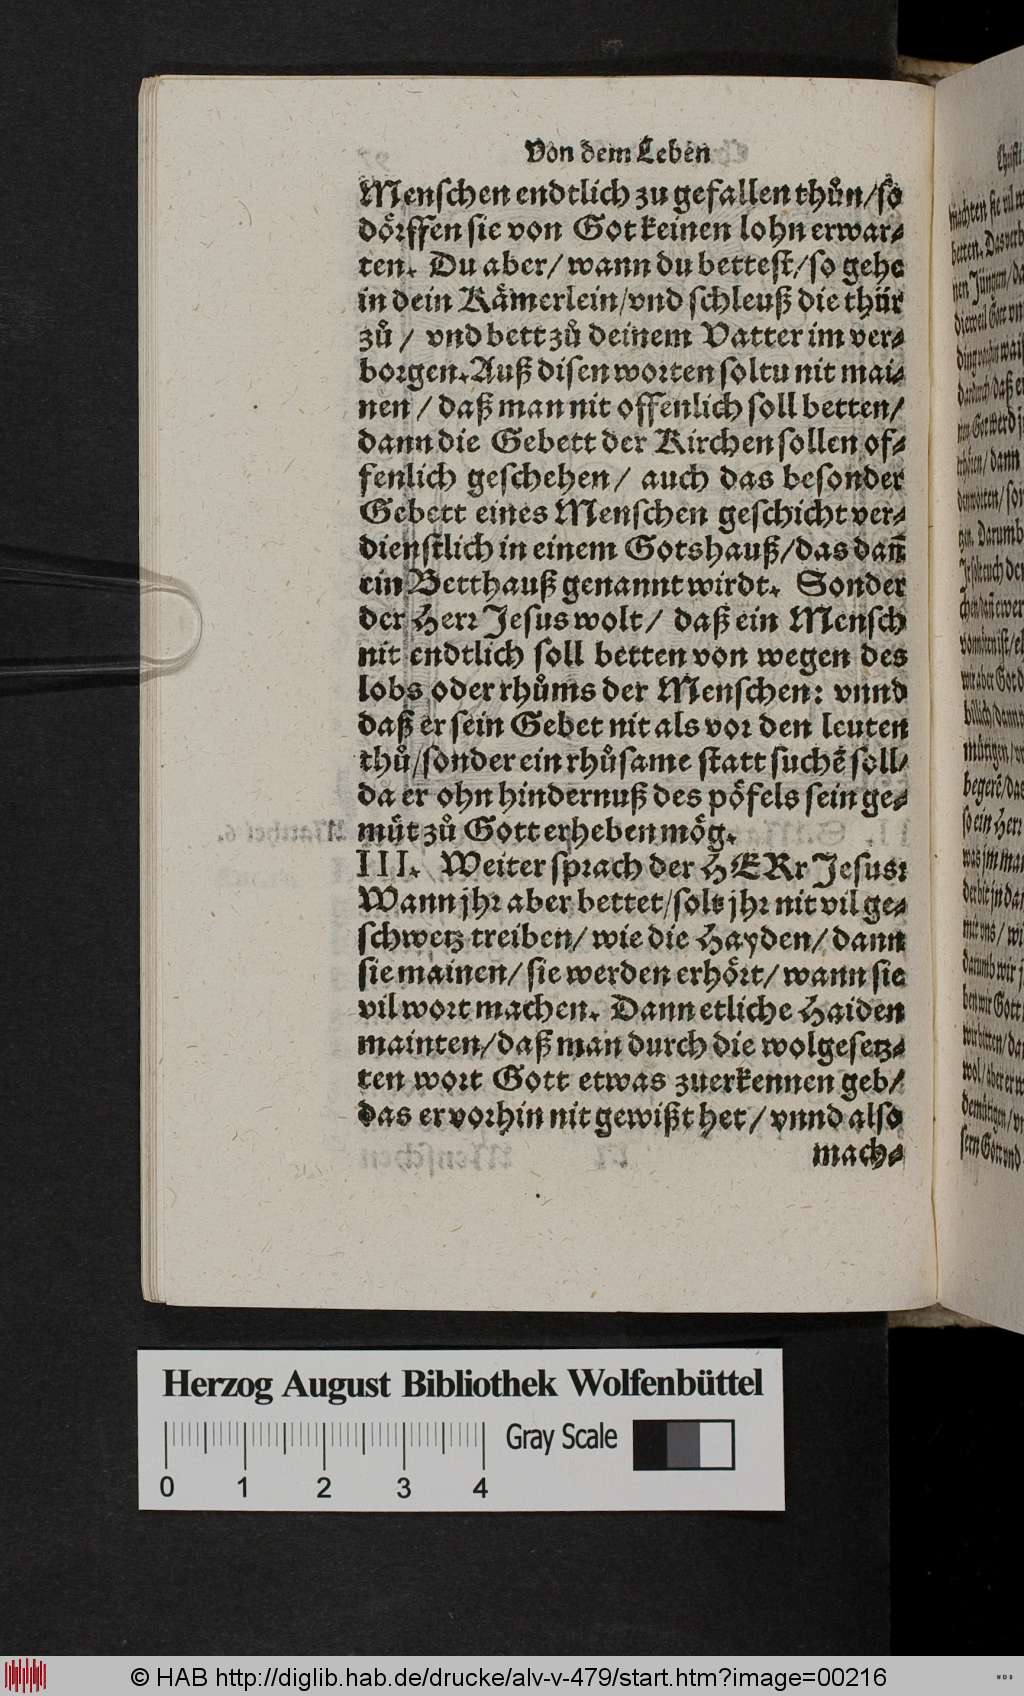 Von dem Leben
Menschen endtlich zu gefallen thůn/so
doͤrffen sie von Got keinen lohn erwar⸗
ten. Du aber/ wann du bettest/so gehe
in dein Kaͤmerlein/vnd schleuß die thür
zů/ vnd bett zů deinem Vatter im ver⸗
borgen. Auß disen worten soltu nit mai⸗
nen/ daß man nit offenlich soll betten/
dann die Gebett der Kirchen sollen of⸗
fenlich geschehen/ auch das besonder
Gebett eines Menschen geschicht ver⸗
dienstlich in einem Gotshauß/das dañ
ein Betthauß genannt wirdt. Sonder
der Herr Jesus wolt/ daß ein Mensch
nit endtlich soll betten von wegen des
lobs oder rhůms der Menschen: vnnd
daß er sein Gebet nit als vor den leuten
thů/sonder ein rhůsame statt suchẽ soll/
da er ohn hindernuß des poͤfels sein ge⸗
muͤt zů Gott erheben moͤg.
III. Weiter sprach der HERr Jesus:
Wann jhr aber bettet/solt jhr nit vil ge⸗
schwetz treiben/ wie die Hayden/ dann
sie mainen/ sie werden erhoͤrt/ wann sie
vil wort machen. Dann etliche Haiden
mainten/daß man durch die wolgesetz⸗
ten wort Gott etwas zuerkennen geb/
das er vorhin nit gewißt het/ vnnd also
mach⸗
Herzog August Bibliothek Wolfenbüttel
Gray Scale
0 1 2 3 4
© HAB http://diglib.hab.de/drucke/alv-v-479/start.htm?image=00216